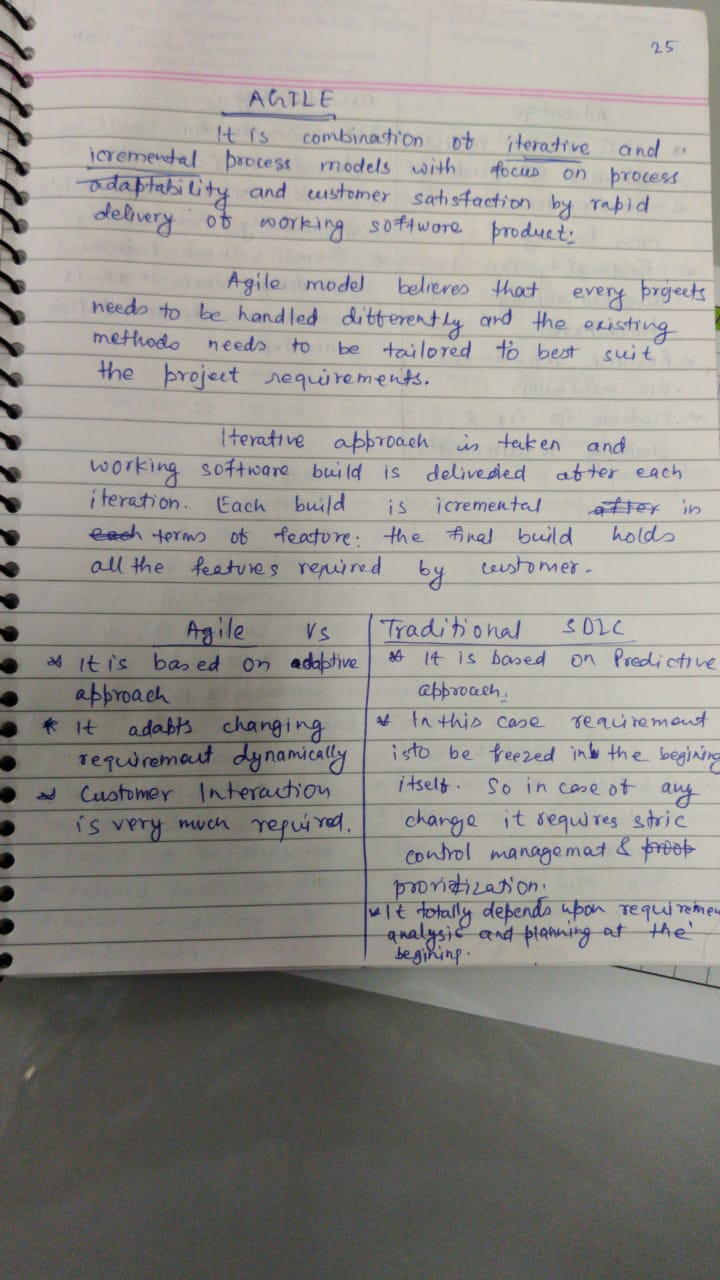 25
AGILE
It is combination of iterative and
icremental process models with focus on process
adaptability and customer satisfaction by rapid
delivery of working software product.
Agile model believes that every projects
needs to be handled differently and the existing
methods needs to be tailored to best suit
the project requirements.
Iterative approach is taken and
working software build is delivered after each
iteration. Each build is icremental after in
each terms of feature: the final build holds
all the features required by customer.
Agile Vs Traditional SDLC
* It is based on adaptive
approach
* It adapts changing
requirement dynamically
* Customer Interaction
is very much required.
* It is based on Predictive
approach.
* In this case requirement
is to be freezed in the begining
itself. So in case of any
change it requires stric
control managemat &
* It totally depends upon requiremen
analysis and planning at the
begining.